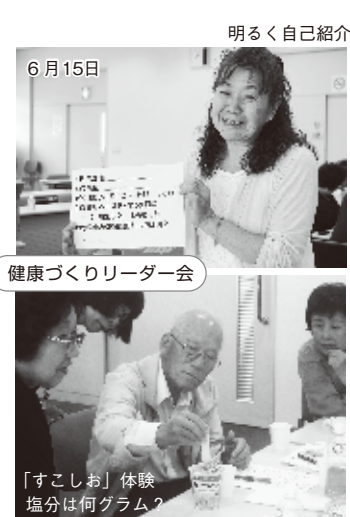 明るく自己紹介
6月15日
健康づくりリーダー会
「すこしお」体験
塩分は何グラム?